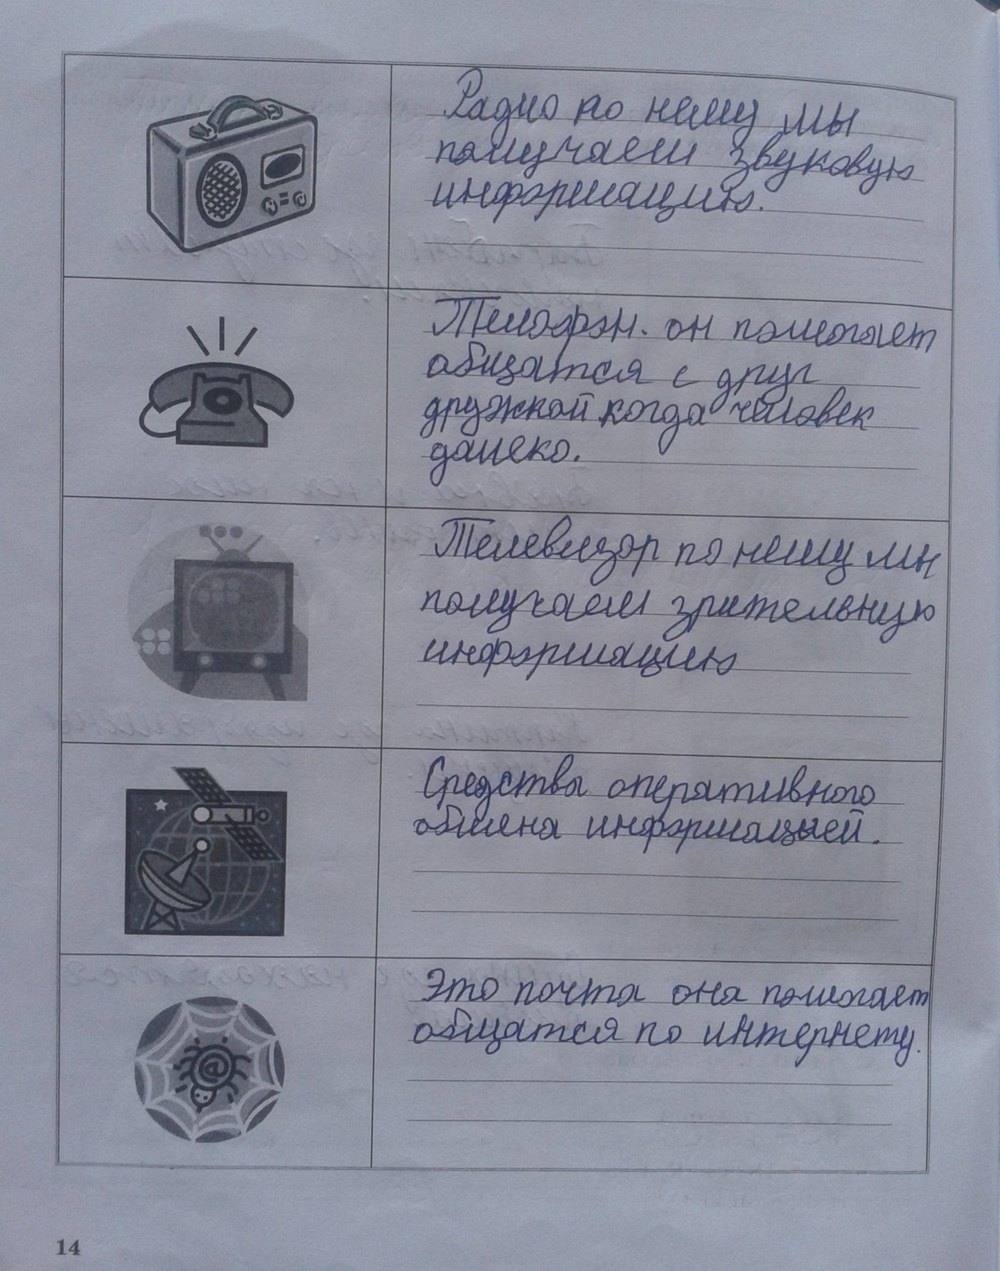 Радио по нему мы
получаем звуковую
информацию.
Телофон. он помогает
общатся с друг
дружкой когда человек
далеко.
Телевизор по нему мы
получаем зрительную
информацию
Средства оперативного
обмена информацыей.
Это почта она помогает
общатся по интернету.
@
14